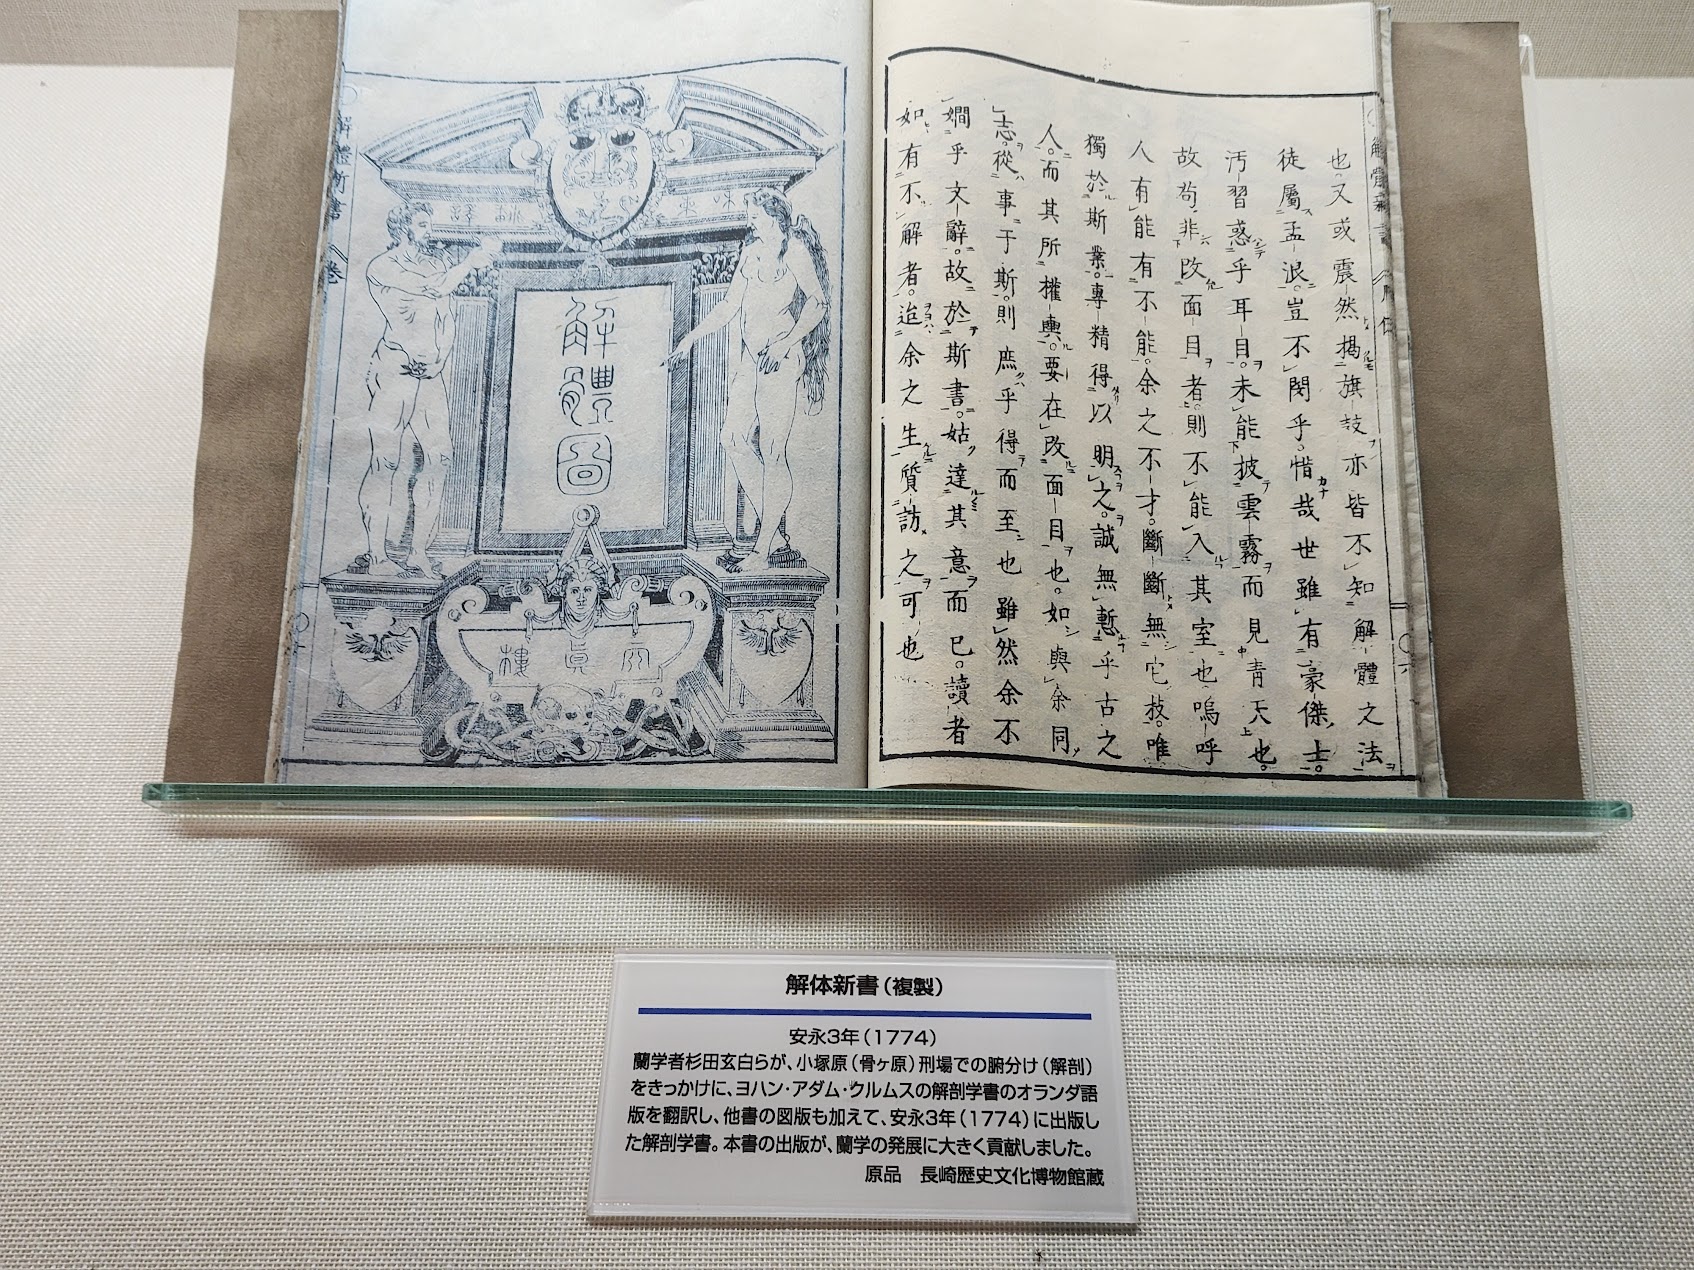 也又或震然揭旗鼓亦皆不知解體之法
徒屬孟浪豈不閔乎惜哉世雖有豪傑士
汚習惑乎耳目未能披雲霧而見青天也
故苟非改面目者則不能入其室也嗚呼
人有能有不能余之不才斷斷無它技唯
獨於斯業專精得以明之誠無慙乎古之
人而其所權輿要在改面目也如與余同
志從事于斯則庶乎得而至也雖然余不
嫺乎文辭故於斯書姑達其意而已讀者
如有不解者迨余之生質訪之可也
解體圖
解體新書
卷
解体新書（複製）
安永3年（1774）
蘭学者杉田玄白らが、小塚原（骨ヶ原）刑場での腑分け（解剖）
をきっかけに、ヨハン・アダム・クルムスの解剖学書のオランダ語
版を翻訳し、他書の図版も加えて、安永3年（1774）に出版し
た解剖学書。本書の出版が、蘭学の発展に大きく貢献しました。
原品　長崎歴史文化博物館蔵